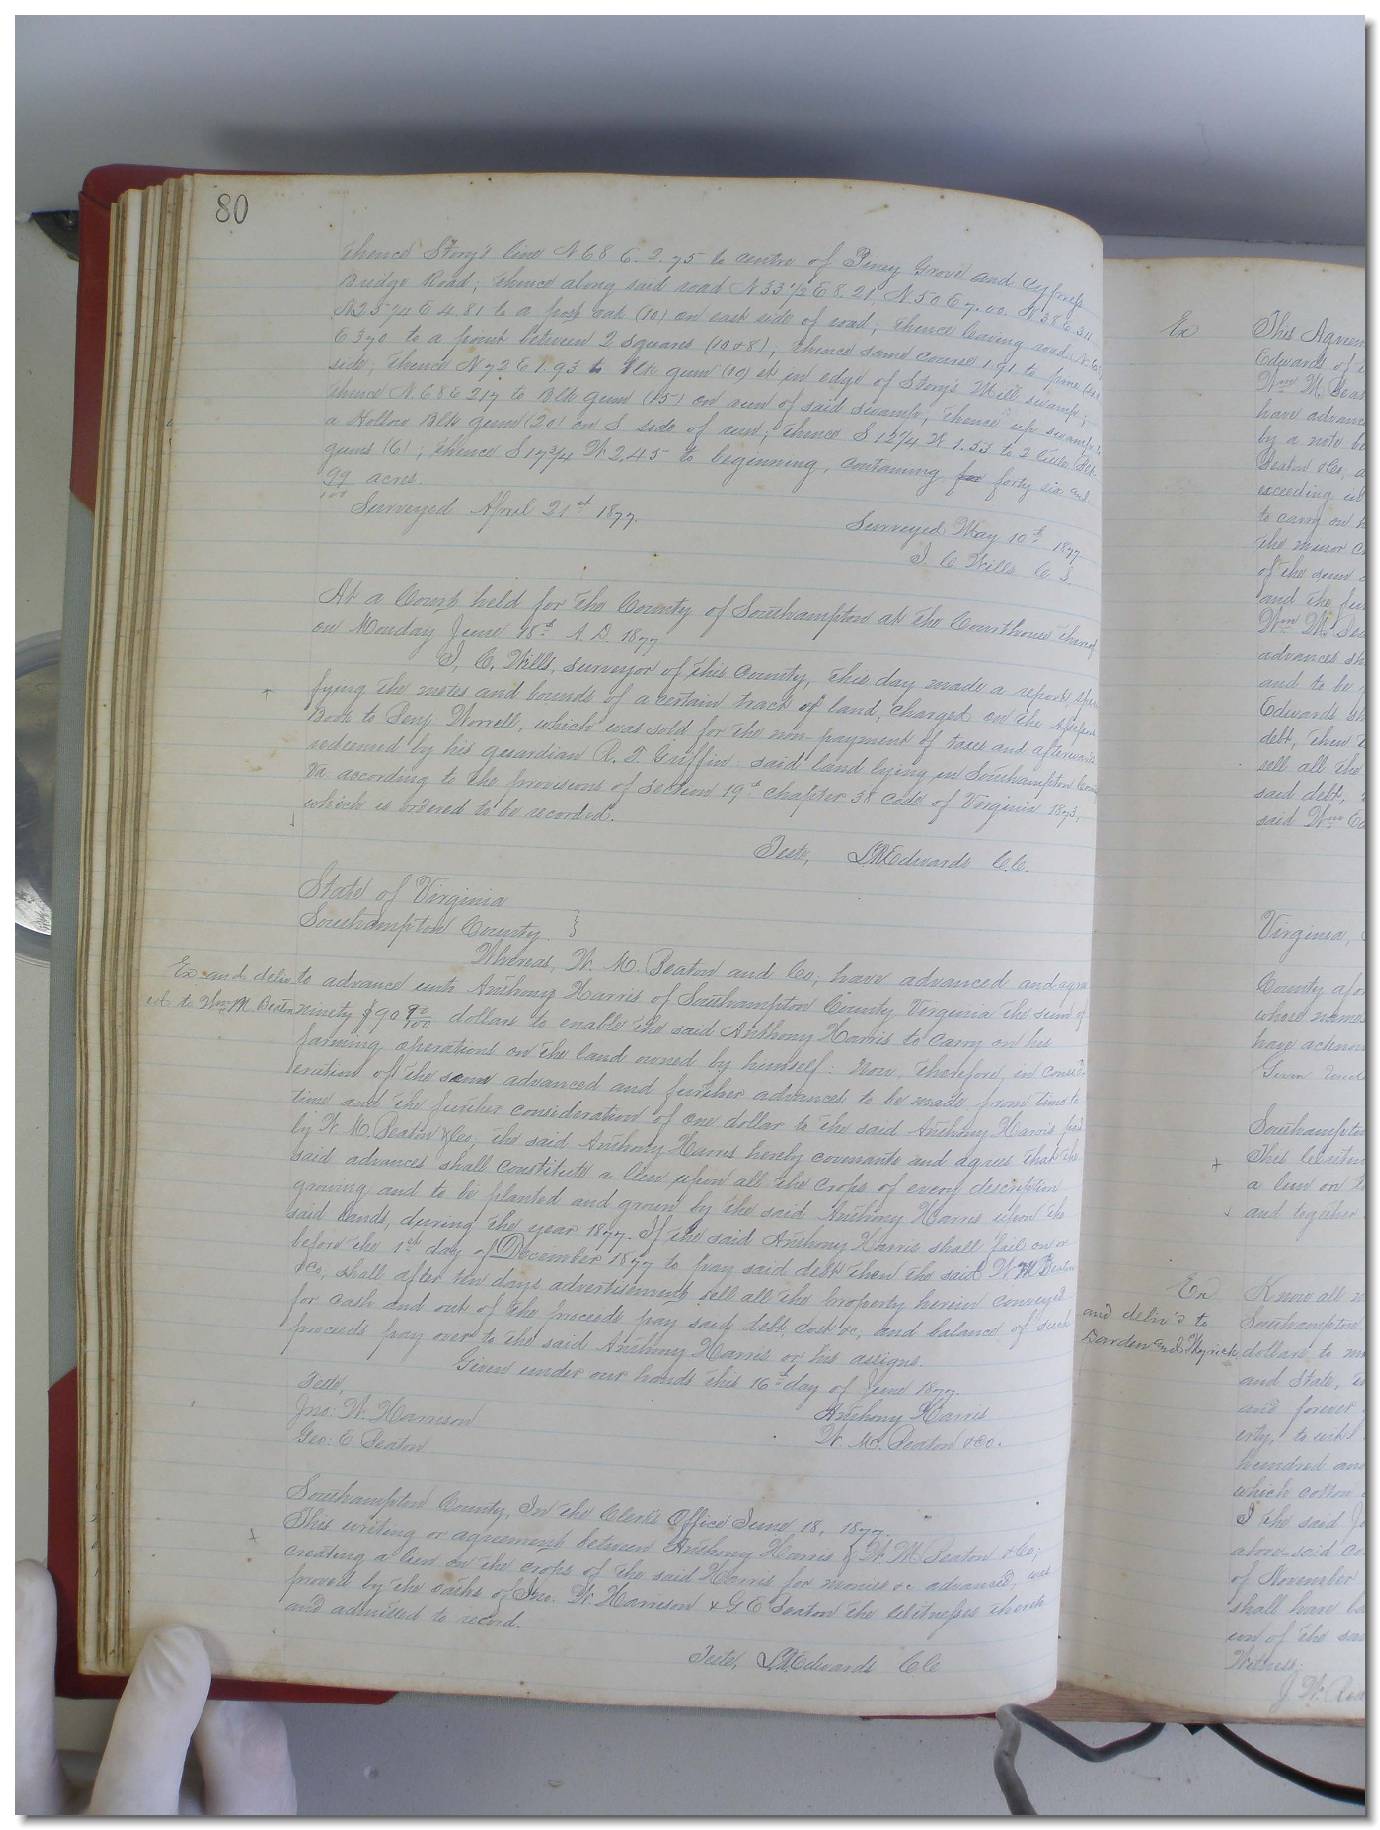 80
thence Story's line N 68 E. 2.75 to centre of Piney Grove and Cypress
Bridge Road; thence along said road N 33 1/2 E 8.21 N 50 E 7.00. N 38 E 3.11
N 25 3/4 E 4.81 to a post oak (10) on east side of road; thence leaving road
E 3.70 to a point between 2 squares (10 & 8), thence same course 1.91 to pine
side; thence N 72 E 1.93 to Blk gum (10) in edge of Story's Mill swamp;
thence N. 68 E 2.17 to Blk gum (15) on run of said swamp; thence up swamp to
a Hollow Blk gum (20) on S side of run; thence S 12 1/4 W 1.53 to 2 little
gums (6); thence S 17 3/4 W 2.45 to beginning, containing for forty six and
99/100 acres.
Surveyed April 21st 1877.
Surveyed May 10th 1877
J. C. Wills C. S.
At a Court held for the County of Southampton at the Courthouse thereof
on Monday June 18th A. D. 1877
J. C. Wills, surveyor of this County, this day made a report speci
fying the metes and bounds of a certain tract of land, charged on the
Book to Benj Worrell, which was sold for the non-payment of taxes and afterwards
redeemed by his guardian R. T. Griffin said land lying in Southampton County
Va. according to the provisions of section 19th chapter 38 Code of Virginia 1873,
which is ordered to be recorded.
Teste, L. R. Edwards C. C.
State of Virginia
Southampton County }
Whereas, W. M. Beaton and Co; have advanced and agree
Ex and deliv
to advance unto Anthony Harris of Southampton County Virginia the sum of
ed to Wm M Beaton
ninety $90 90/100 dollars to enable the said Anthony Harris to carry on his
farming operations on the land owned by himself: Now, therefore, in consid
eration of the same advanced and further advances to be made from time to
time and the further consideration of one dollar to the said Anthony Harris paid
by W. M. Beaton & Co; the said Anthony Harris hereby covenants and agrees that the
said advances shall constitute a lien upon all the crops of every description
growing and to be planted and grown by the said Anthony Harris upon the
said lands, during the year 1877. If the said Anthony Harris shall fail on or
before the 1st day of December 1877 to pay said debt then the said W M Beaton
& Co, shall after ten days advertisement sell all the property herein conveyed
for cash and out of the proceeds pay said debt, cost &c, and balance of such
proceeds pay over to the said Anthony Harris or his assigns.
Given under our hands this 16th day of June 1877.
Teste,
Jno: W. Harrison
Anthony Harris
Geo: E Beaton
W. M. Beaton & Co.
Southampton County, In the Clerk's Office June 18, 1877.
This writing or agreement between Anthony Harris & W. M Beaton & Co;
creating a lien on the crops of the said Harris for monies &c advanced, was
proved by the oaths of Jno. W. Harrison & G E Beaton the Witnesses thereto
and admitted to record.
Teste, L. R. Edwards Clk
Ex
This Agreem
Edwards of
Wm M. Beat
have advanc
by a note
Beaton & Co,
exceeding
to carry on
the manor
of the sum
and the fur
Wm M. Bea
advances sh
and to be
Edwards sh
debt, then
sell all the
said debt,
said Wm Ed
Virginia,
County afor
whose names
have acknow
Given und
Southampton
This writin
a lien on
and together
Ex
and deliv'd to
Barden and Myrick
Know all
Southampton
dollars to
and State,
and forever
erty, to wit:
hundred and
which cotton
I the said
above-said
of November
shall have
ion of the said
Witness;
J W.